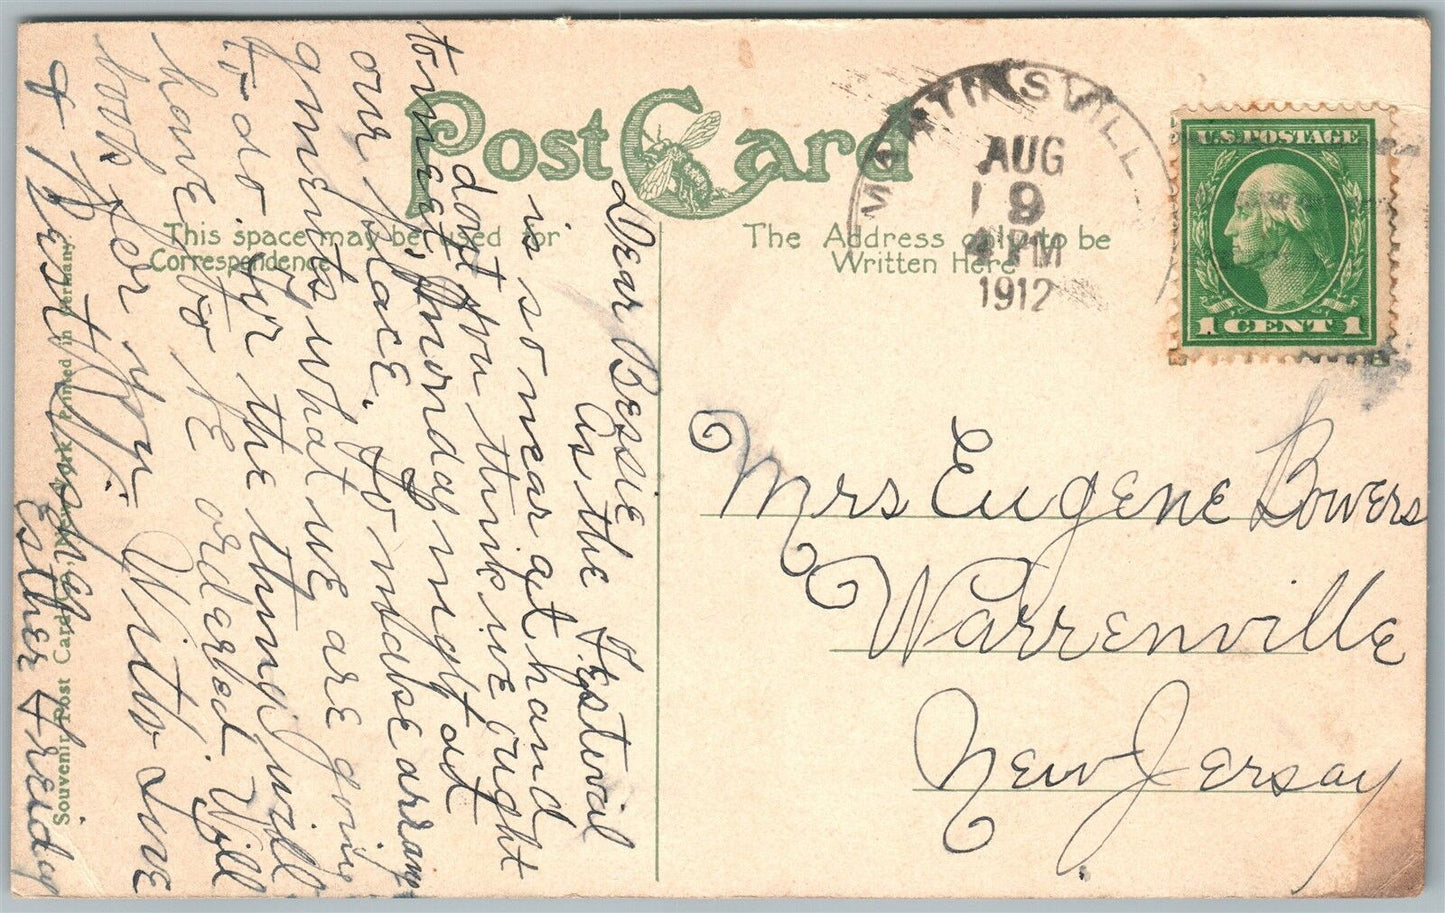 Post Card
This space may be used for
Correspondence
The Address only to be
Written Here
MARTINSVILL
AUG
9
4 PM
1912
U.S. POSTAGE
1 CENT 1
Mrs Eugene Bowers
Warrenville
New Jersay
Dear Bessie
As the Festivail
is so near at hand
dont you think we ought
to meet, Thursday night at
our place. to make arran
gments, what we are going
to do. for the things will
have to be ordered. Will
look for you. With Love
& Best Wishes
Esther & Freidy
Souvenir Post Card Co., New York Printed in Germany